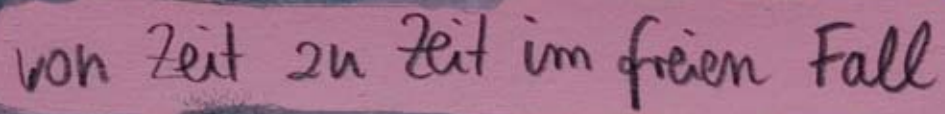 von Zeit zu Zeit im freien Fall